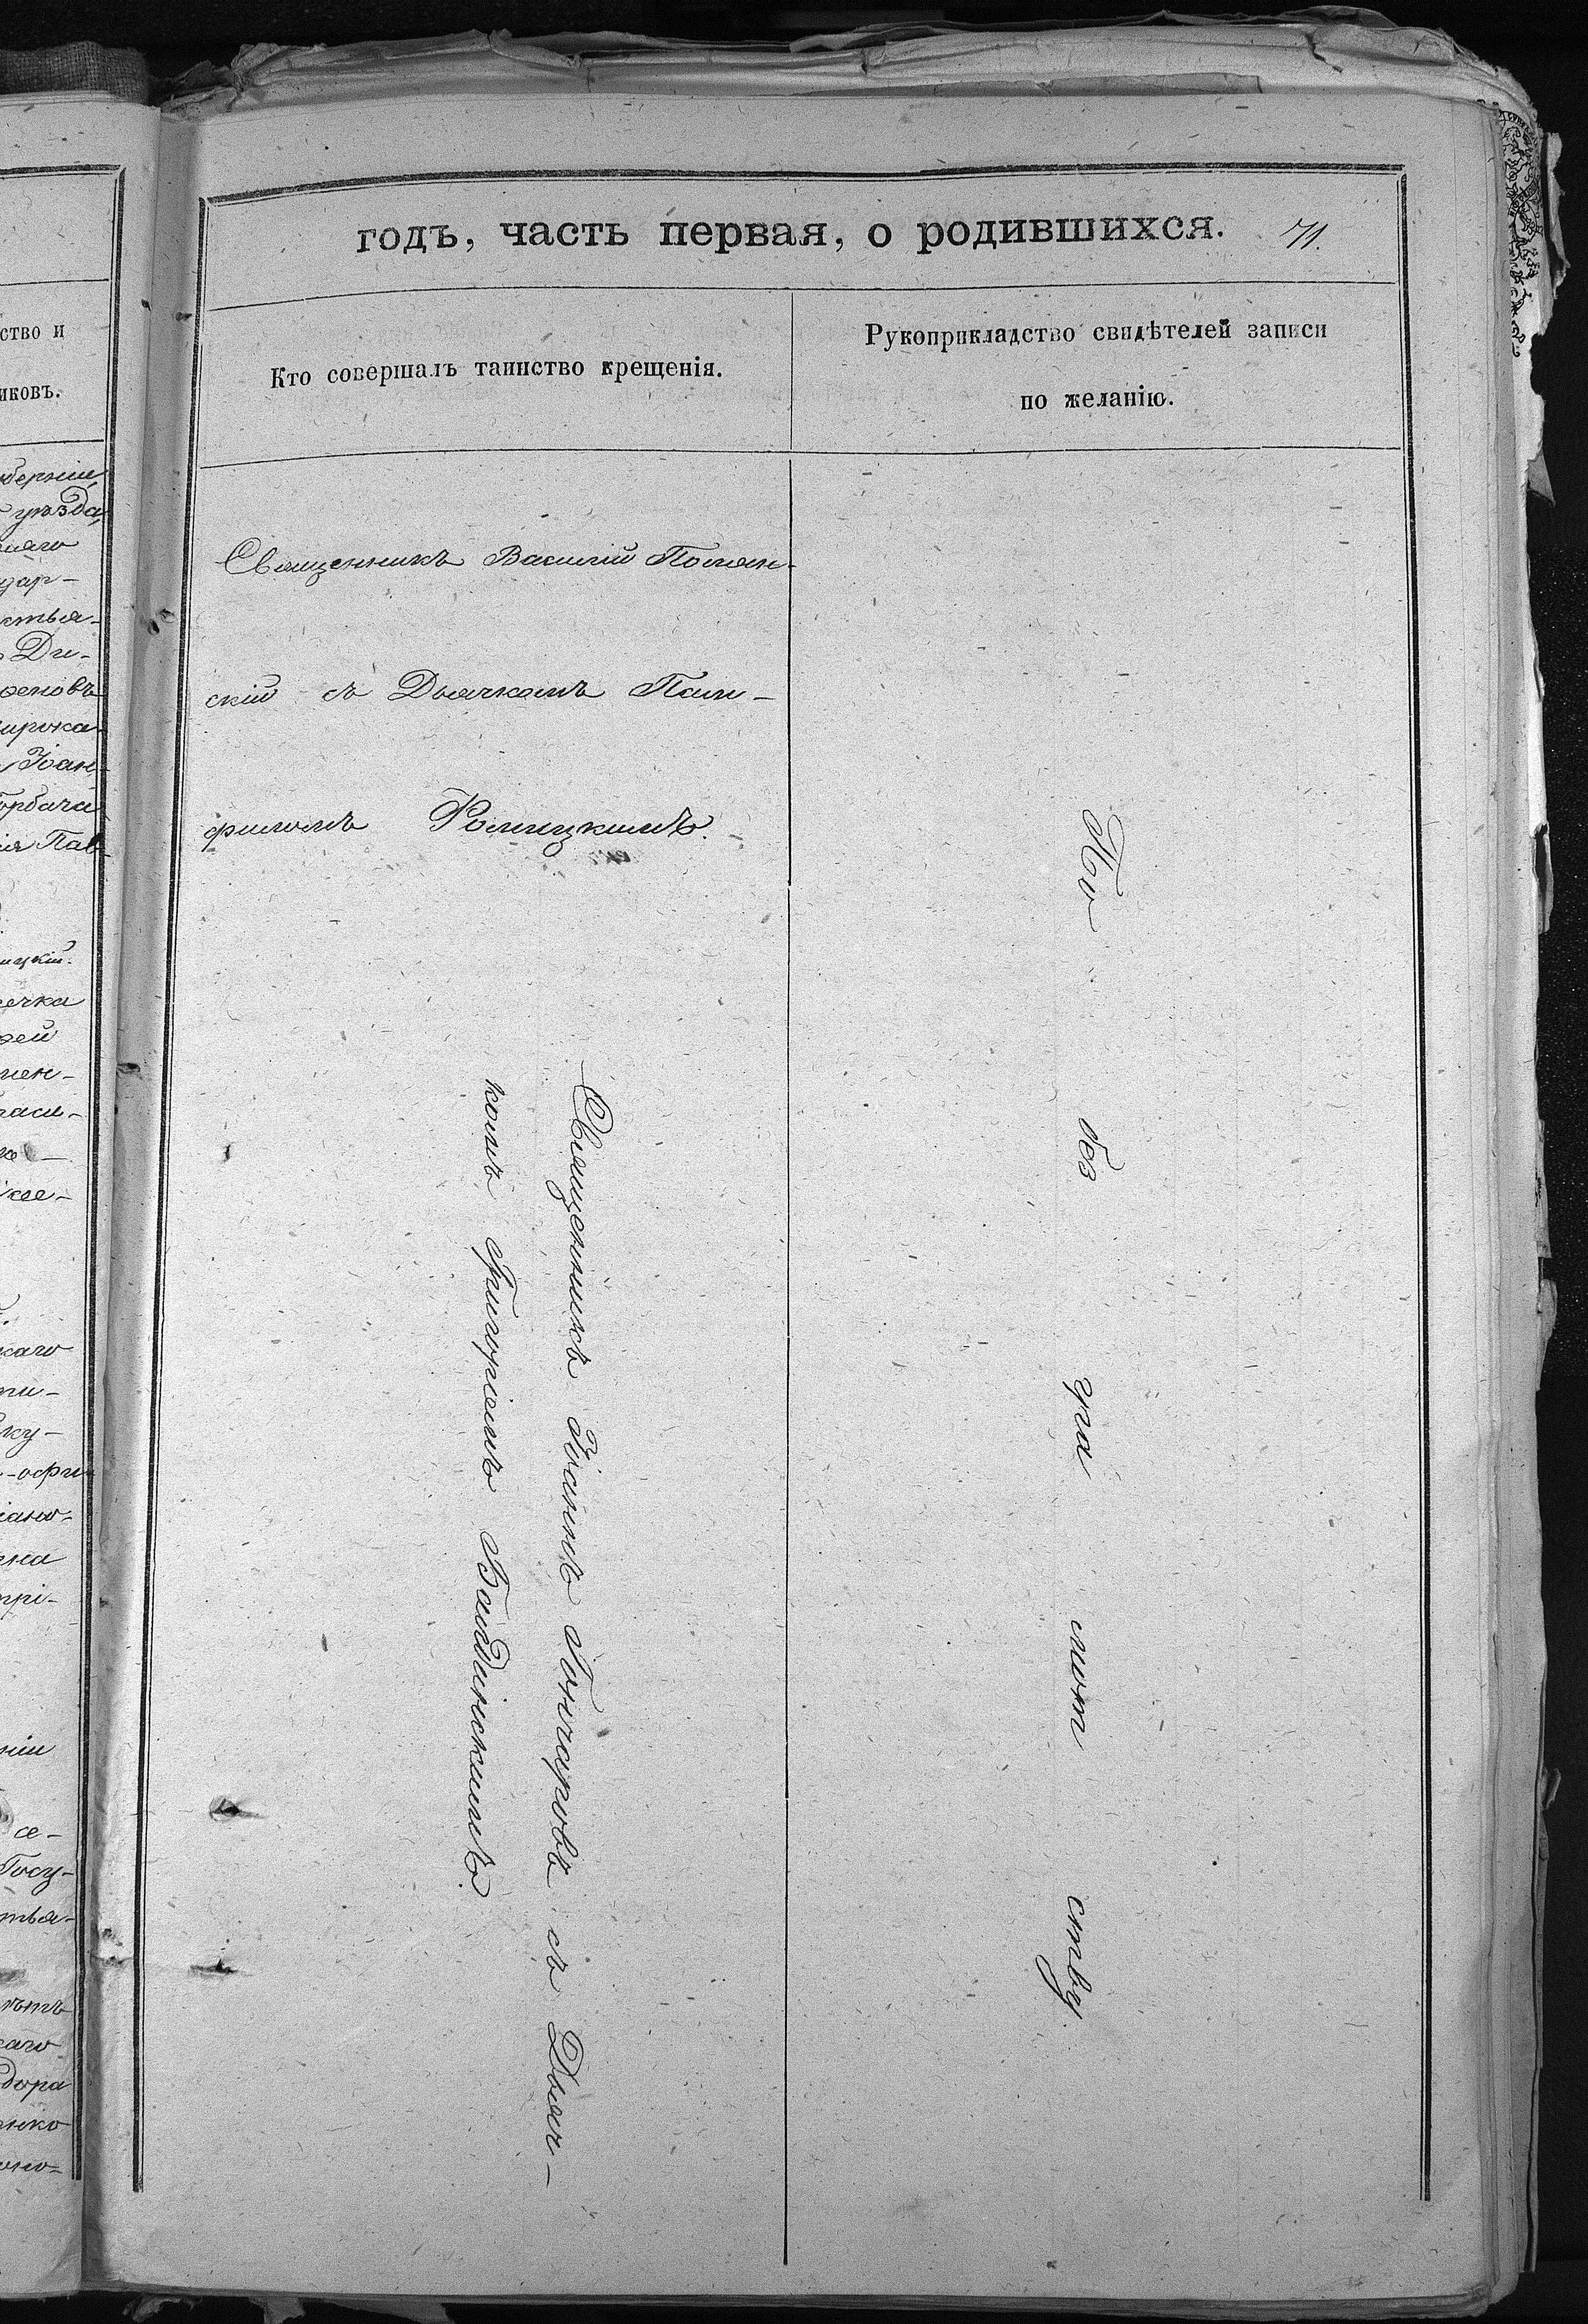 годъ, часть первая, о родившихся. 71.
Кто совершалъ таинство крещенія.
Рукоприкладство свидѣтелей записи
по желанію.
Священникъ Василій Полян-
скій съ Дьячкомъ Пам-
филомъ Ромицкимъ.
Священникъ Іоаннъ Гончаровъ съ Дьяч-
комъ Григоріемъ Бандинскимъ.
По без гра мот ству.
ство и
иковъ.
уѣзда,
Ди-
Іоан-
Горбача
Пав-
Госу-